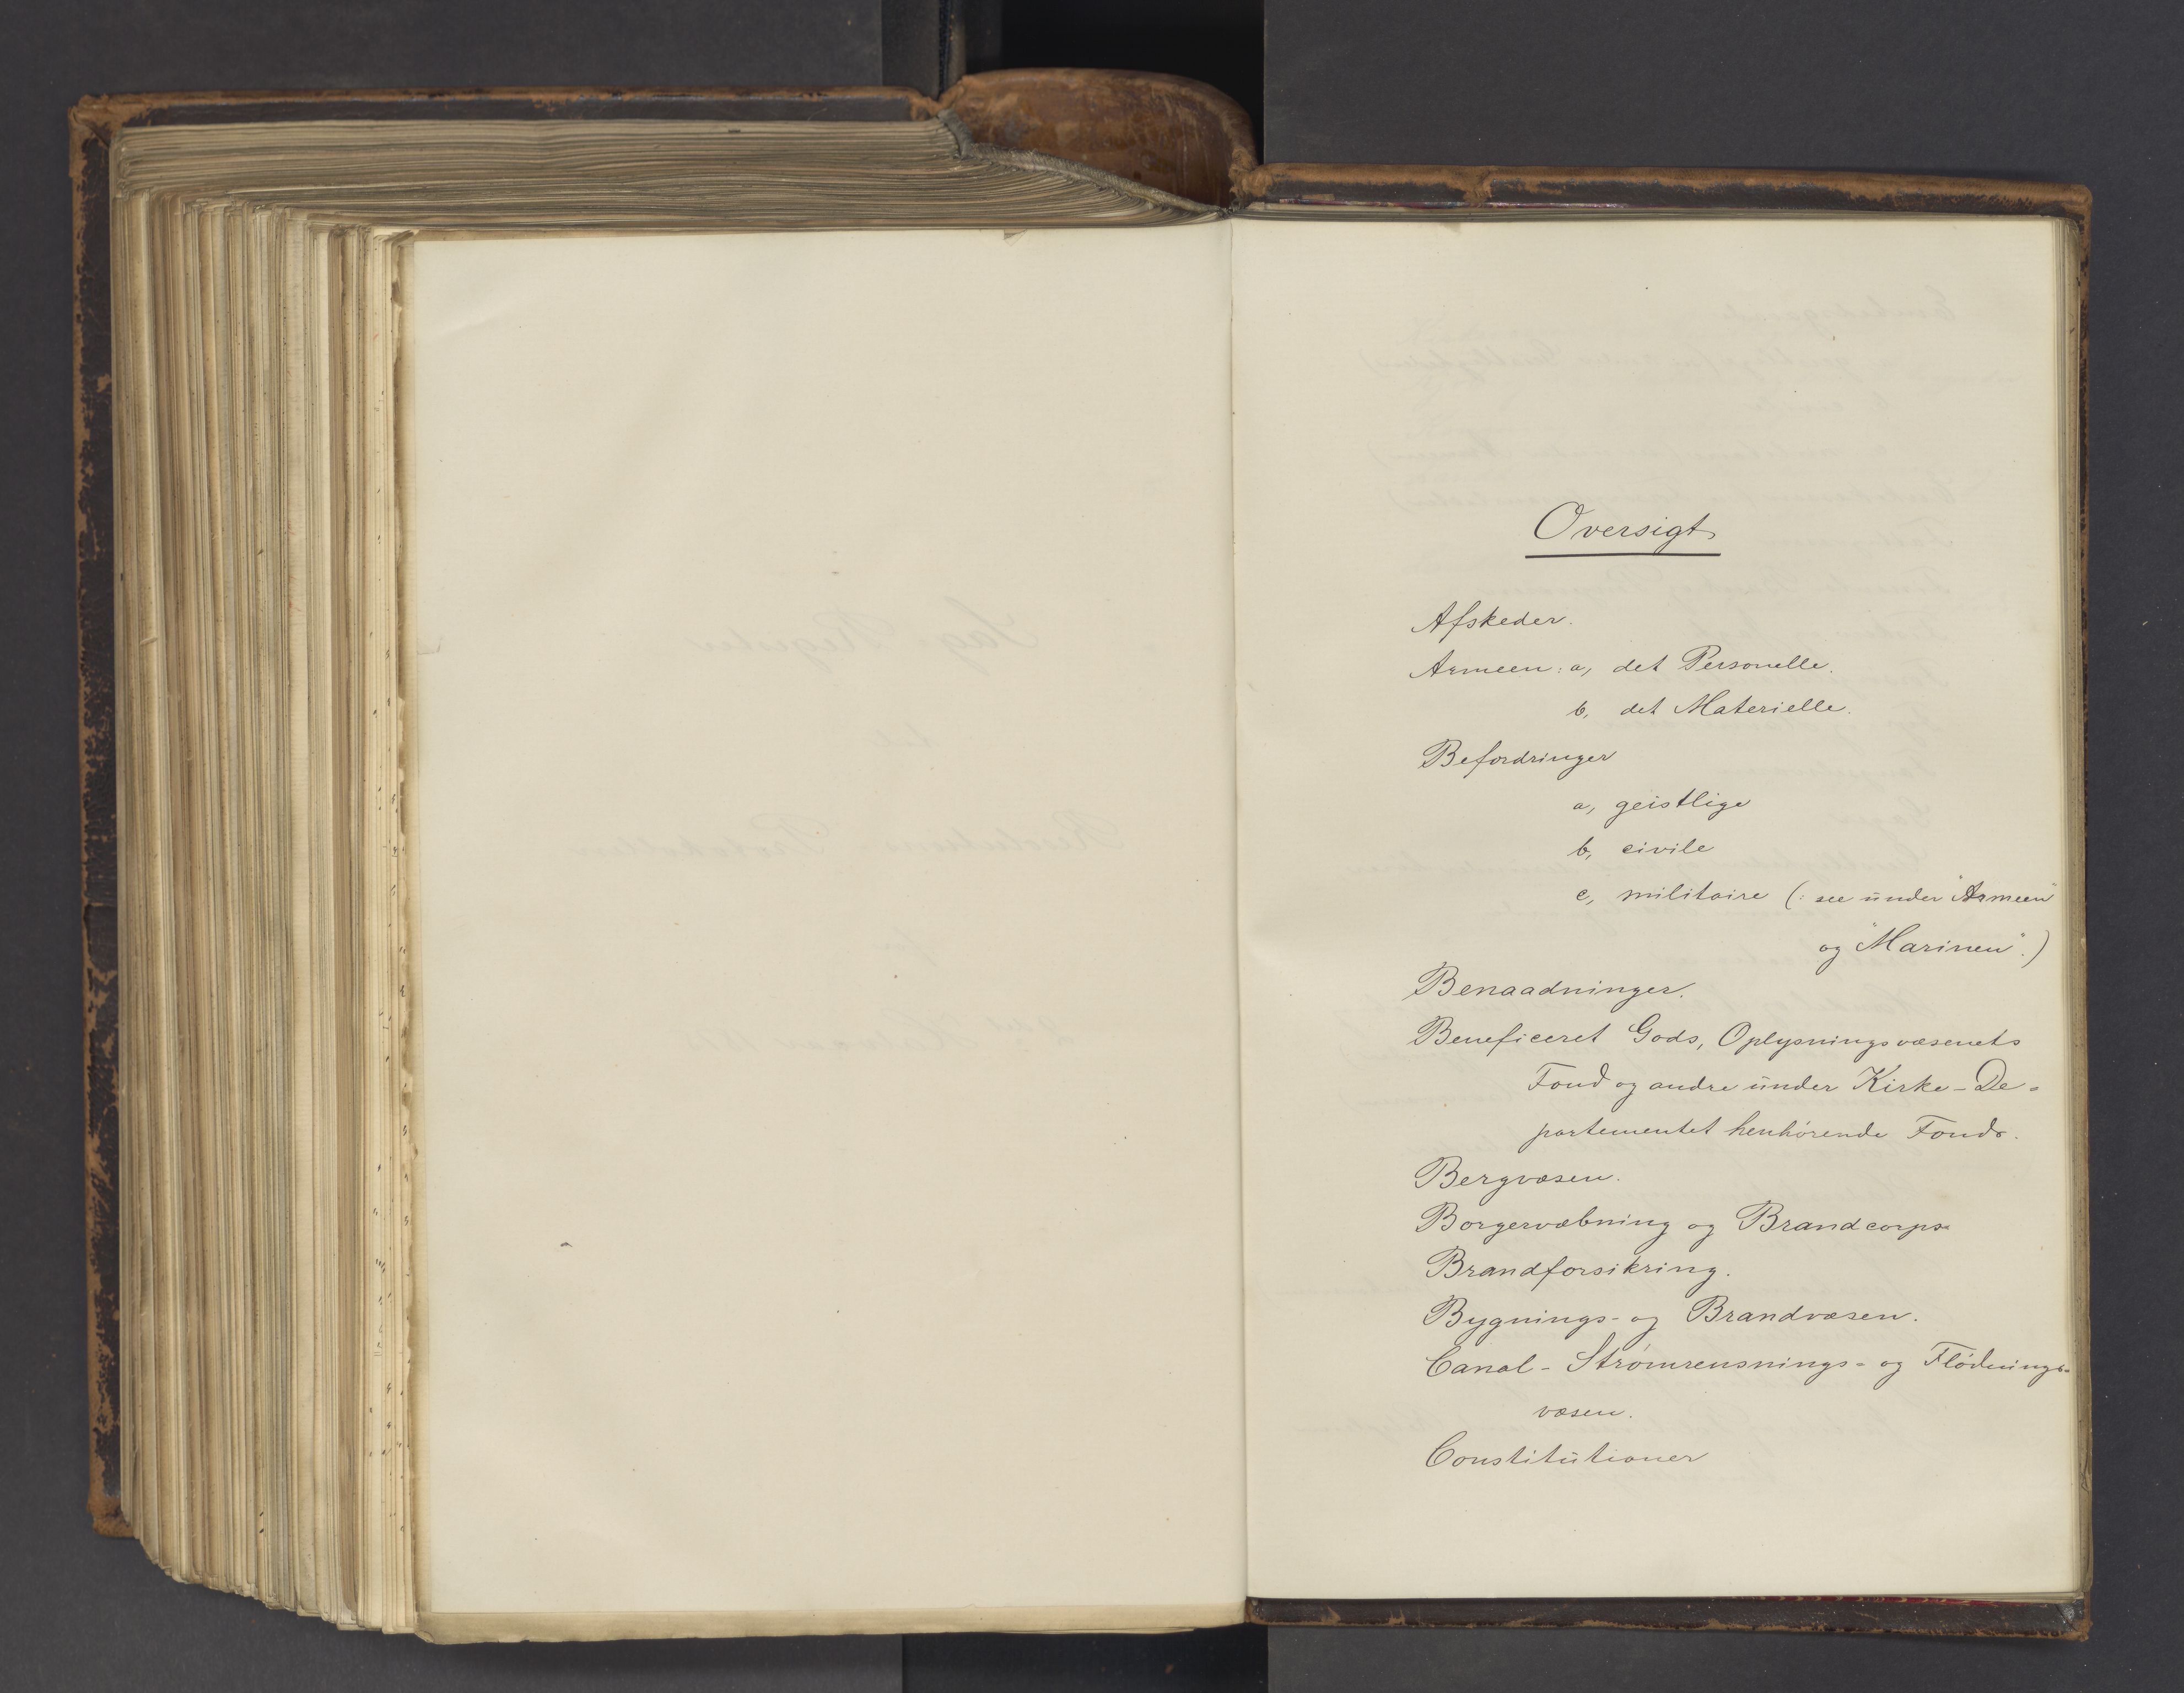 Oversigt
Afskeder.
Armeen: a, det Personelle.
b, det Materielle.
Befordringer
a, geistlige
b, civile
c, militaire (: see under "Armeen"
og "Marinen".)
Benaadninger.
Beneficeret Gods, Oplysningsvæsenets
Fond og andre under Kirke-De-
partementet henhørende Fonds.
Bergvæsen.
Borgervæbning og Brandcorps
Brandforsikring.
Bygnings- og Brandvæsen.
Canal- Strømrensnings- og Flødnings-
væsen.
Constitutioner